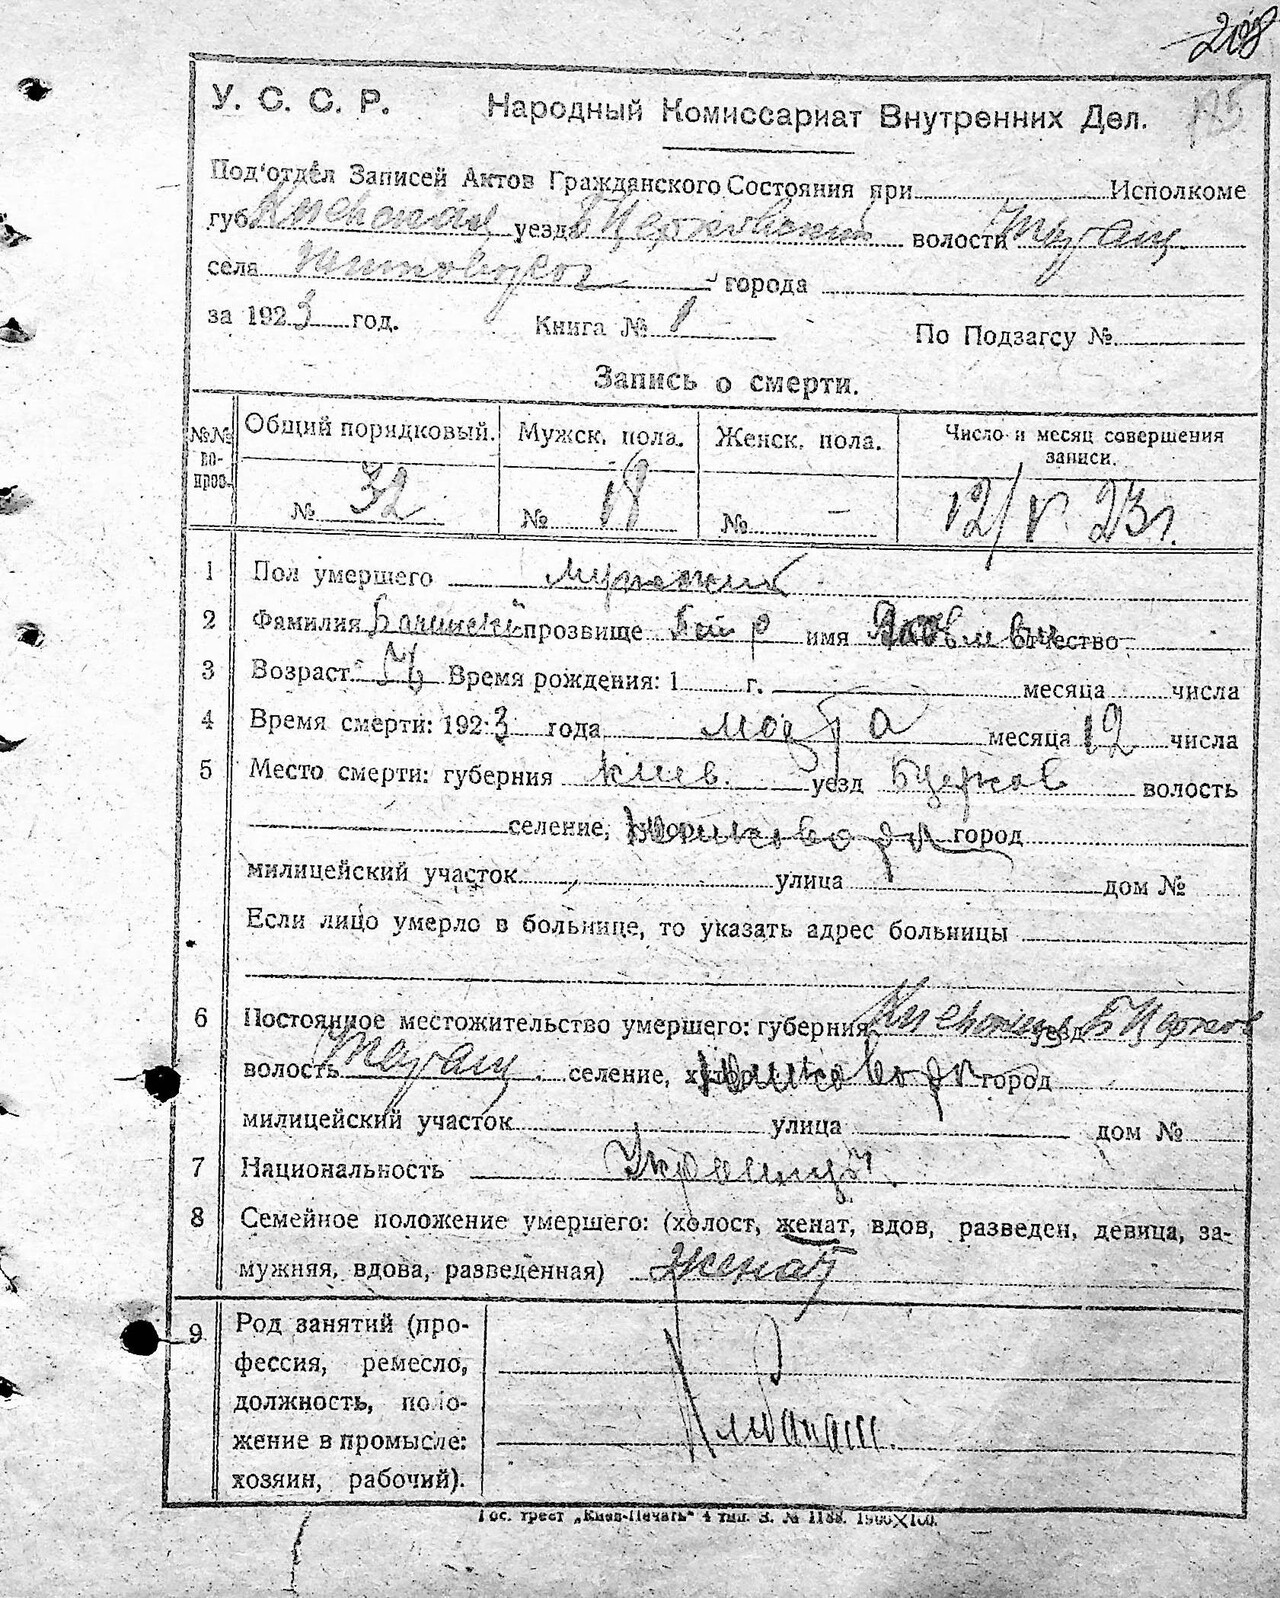 208
125
У. С. С. Р. Народный Комиссариат Внутренних Дел.
Под'отдел Записей Актов Гражданского Состояния при Исполкоме
губ. Киевская уезда Б Церковский волости Тараща.
села города
за 1923 год. Книга № 1 По Подзагсу №
Запись о смерти.
№№ во-прос. Общий порядковый. Мужск. пола. Женск. пола. Число и месяц совершения записи.
№ 32 № 18 № — 12/V 23 г.
1 Пол умершего мужской
2 Фамилия прозвище имя Яковлевич отчество
3 Возраст Время рождения: 1 г. месяца числа
4 Время смерти: 1923 года марта месяца 12 числа
5 Место смерти: губерния Киев. уезд Б Церков волость
селение, город
милицейский участок улица дом №
Если лицо умерло в больнице, то указать адрес больницы
6 Постоянное местожительство умершего: губерния Киевская уезд Б Церков
волость Таращ. селение, хутор город
милицейский участок улица дом №
7 Национальность
8 Семейное положение умершего: (холост, женат, вдов, разведен, девица, за-
мужняя, вдова, разведенная) Женат
9 Род занятий (про-
фессия, ремесло,
должность, поло-
жение в промысле: Хлебопаш.
хозяин, рабочий).
Гос. трест „Киев-Печать“ 4 тип. З. № 1188. 1000×100.